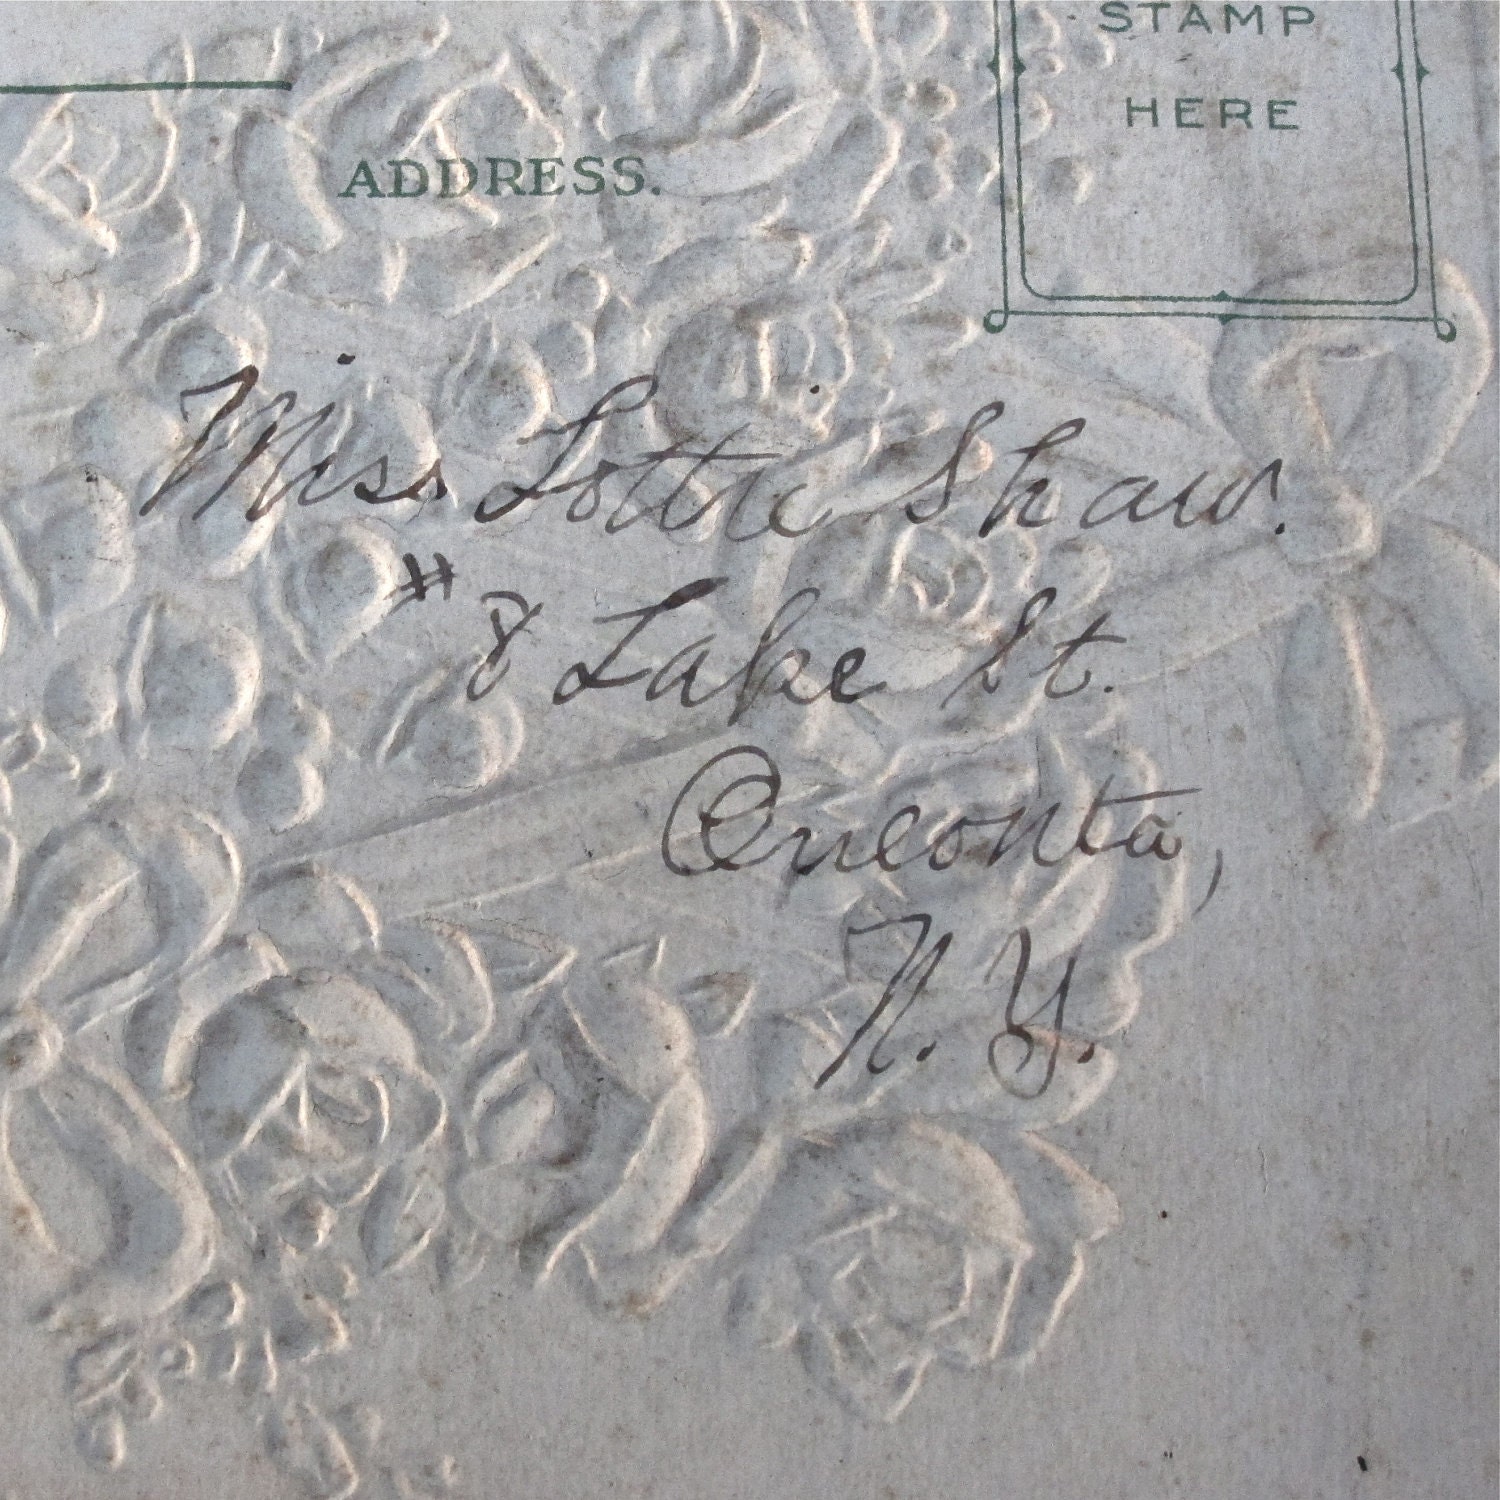 STAMP
HERE
ADDRESS.
Miss Lottie Shaw.
# 8 Lake St.
Oneonta,
N. Y.